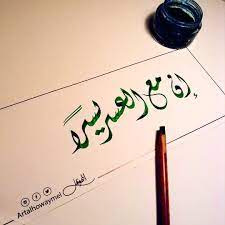 إن مع العسر يسراً
Artalhowaymel